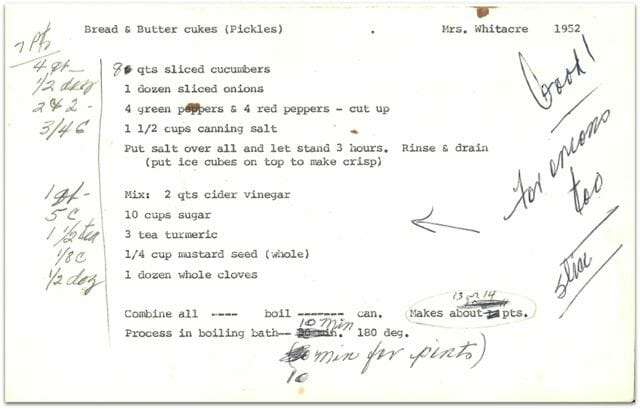 Bread & Butter cukes (Pickles) . Mrs. Whitacre 1952
7 Pts
4 qt- 8 qts sliced cucumbers
1/2 doz 1 dozen sliced onions
2 & 2 - 4 green peppers & 4 red peppers - cut up
3/4 C 1 1/2 cups canning salt
Put salt over all and let stand 3 hours. Rinse & drain
(put ice cubes on top to make crisp)
1 qt- Mix: 2 qts cider vinegar
5 C. 10 cups sugar
1 1/2 tea 3 tea turmeric
1/8 C 1/4 cup mustard seed (whole)
1/2 doz 1 dozen whole cloves
13 or 14
Combine all ---- boil ------- can. Makes about pts.
10 min
Process in boiling bath-- 180 deg.
(min for pints)
10
Good!
for onions
too